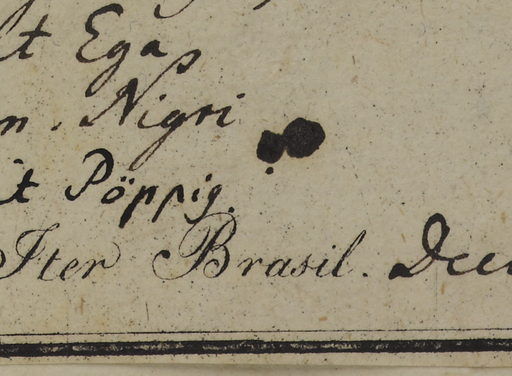 t Ega
n. Nigri
it Pöppig.
Iter Brasil. Dec